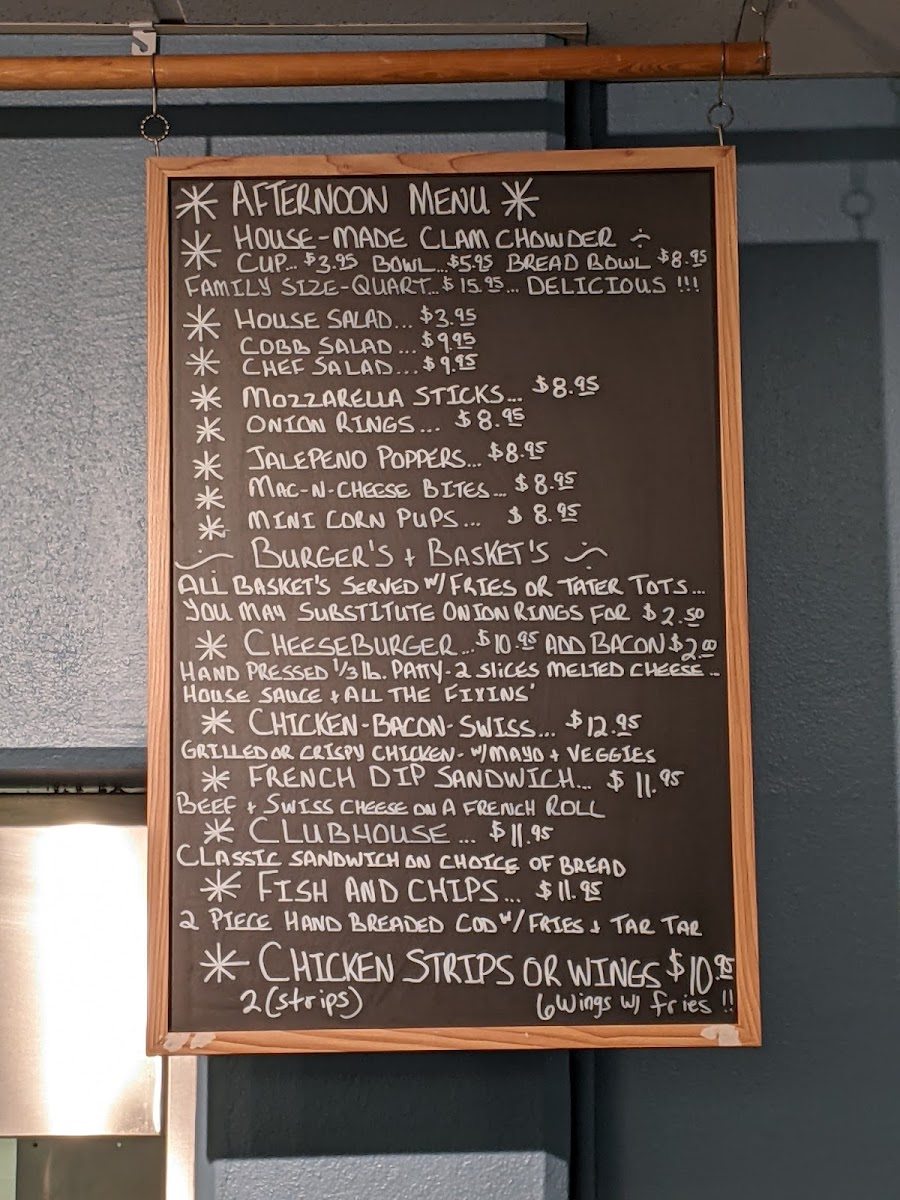 * AFTERNOON MENU *
* HOUSE-MADE CLAM CHOWDER ~
CUP... $3.95 BOWL...$5.95 BREAD BOWL $8.95
FAMILY SIZE-QUART...$15.95... DELICIOUS !!!
* HOUSE SALAD... $3.95
COBB SALAD ... $9.95
* CHEF SALAD... $9.95
* MOZZARELLA STICKS... $8.95
* ONION RINGS... $8.95
* JALEPENO POPPERS... $8.95
* MAC-N-CHEESE BITES... $8.95
* MINI CORN PUPS... $8.95
~ BURGER'S + BASKET'S ~
ALL BASKET'S SERVED W/FRIES OR TATER TOTS...
YOU MAY SUBSTITUTE ONION RINGS FOR $2.50
* CHEESEBURGER...$10.95 ADD BACON $2.00
HAND PRESSED 1/3 lb. PATTY-2 SLICES MELTED CHEESE...
HOUSE SAUCE + ALL THE FIXINS'
* CHICKEN-BACON-SWISS... $12.95
GRILLED OR CRISPY CHICKEN- W/MAYO + VEGGIES
* FRENCH DIP SANDWICH... $11.95
BEEF + SWISS CHEESE ON A FRENCH ROLL
* CLUBHOUSE ... $11.95
CLASSIC SANDWICH ON CHOICE OF BREAD
* FISH AND CHIPS... $11.95
2 PIECE HAND BREADED COD W/FRIES + TAR TAR
* CHICKEN STRIPS OR WINGS $10.95
2(strips) 6 Wings w/ fries !!